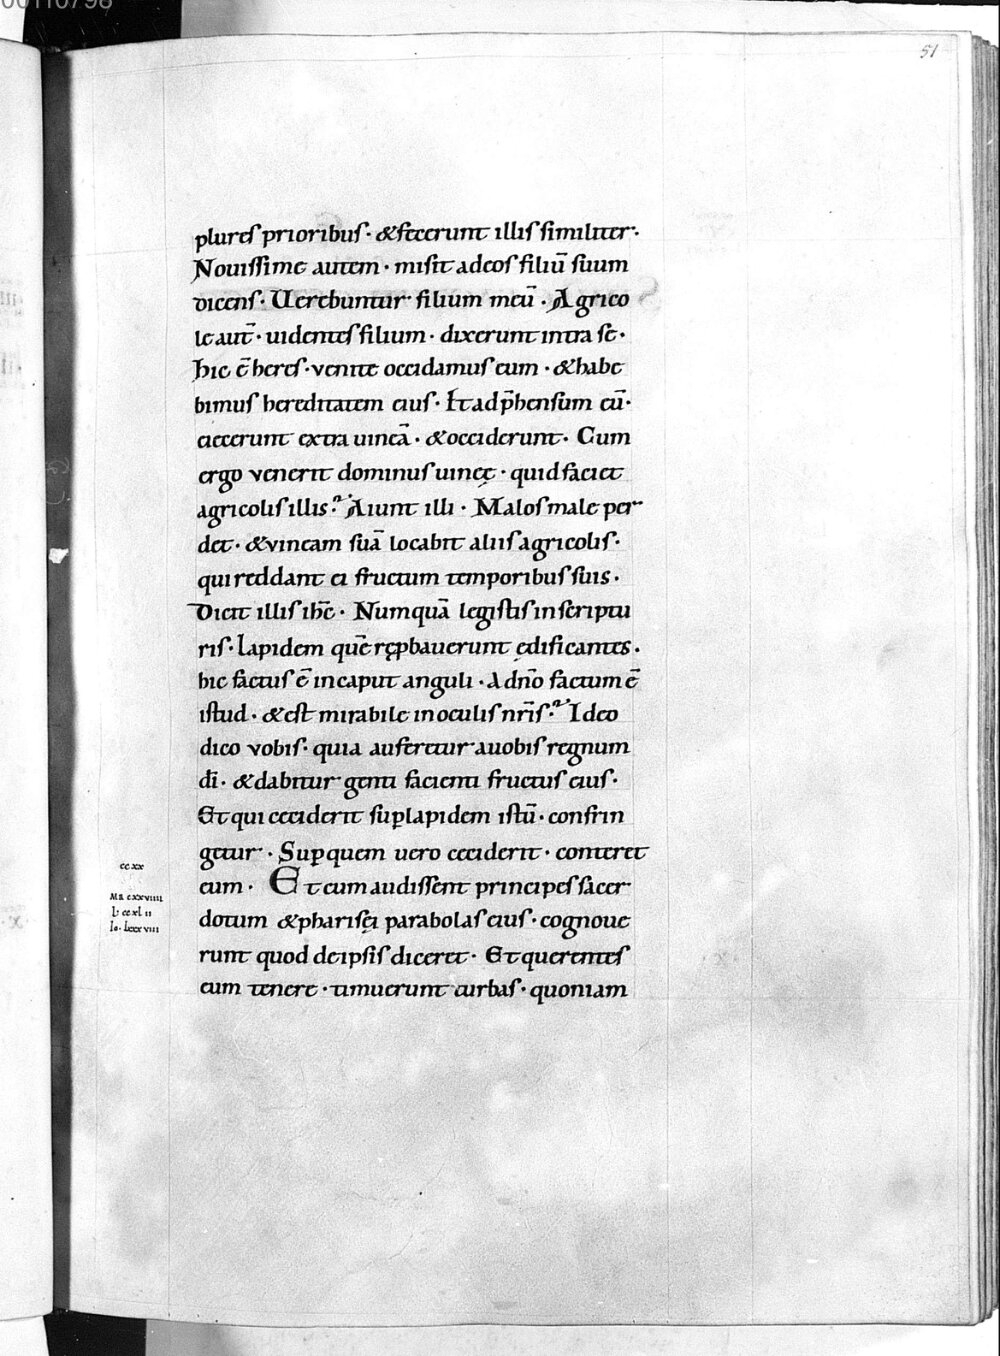 00110798
51
plures prioribus· & fecerunt illis similiter·
Nouissime autem· misit ad eos filiū suum
dicens· Uerebuntur filium meū· Agrico
le aut̄· uidentes filium· dixerunt intra se·
hic ē heres· venite occidamus eum· & habe
bimus hereditatem eius· Et adp̄hensum eū·
eiecerunt extra uineā· & occiderunt· Cum
ergo venerit dominus uineę· quid faciet
agricolis illis? Aiunt illi· Malos male per
det· & vineam suā locabit aliis agricolis·
qui reddant ei fructum temporibus suis·
Dicit illis ih̄c· Numquā legistis in scriptu
ris· Lapidem quē rep̱bauerunt ędificantes·
hic factus ē in caput anguli· A dn̄o factum ē
istud· & est mirabile in oculis nr̄is? Ideo
dico vobis· quia auferetur a uobis regnum
dī· & dabitur genti facienti fructus eius·
Et qui ceciderit sup̱ lapidem istū· confrin
getur· Sup̱ quem uero ceciderit· conteret
cc xx
eum· Et cum audissent principes sacer
MR cxxviiii
L· ccxl ii
Io· lxxxviii
dotum & pharisęi parabolas eius· cognoue
runt quod de ipsis diceret· Et querentes
eum tenere· timuerunt turbas· quoniam